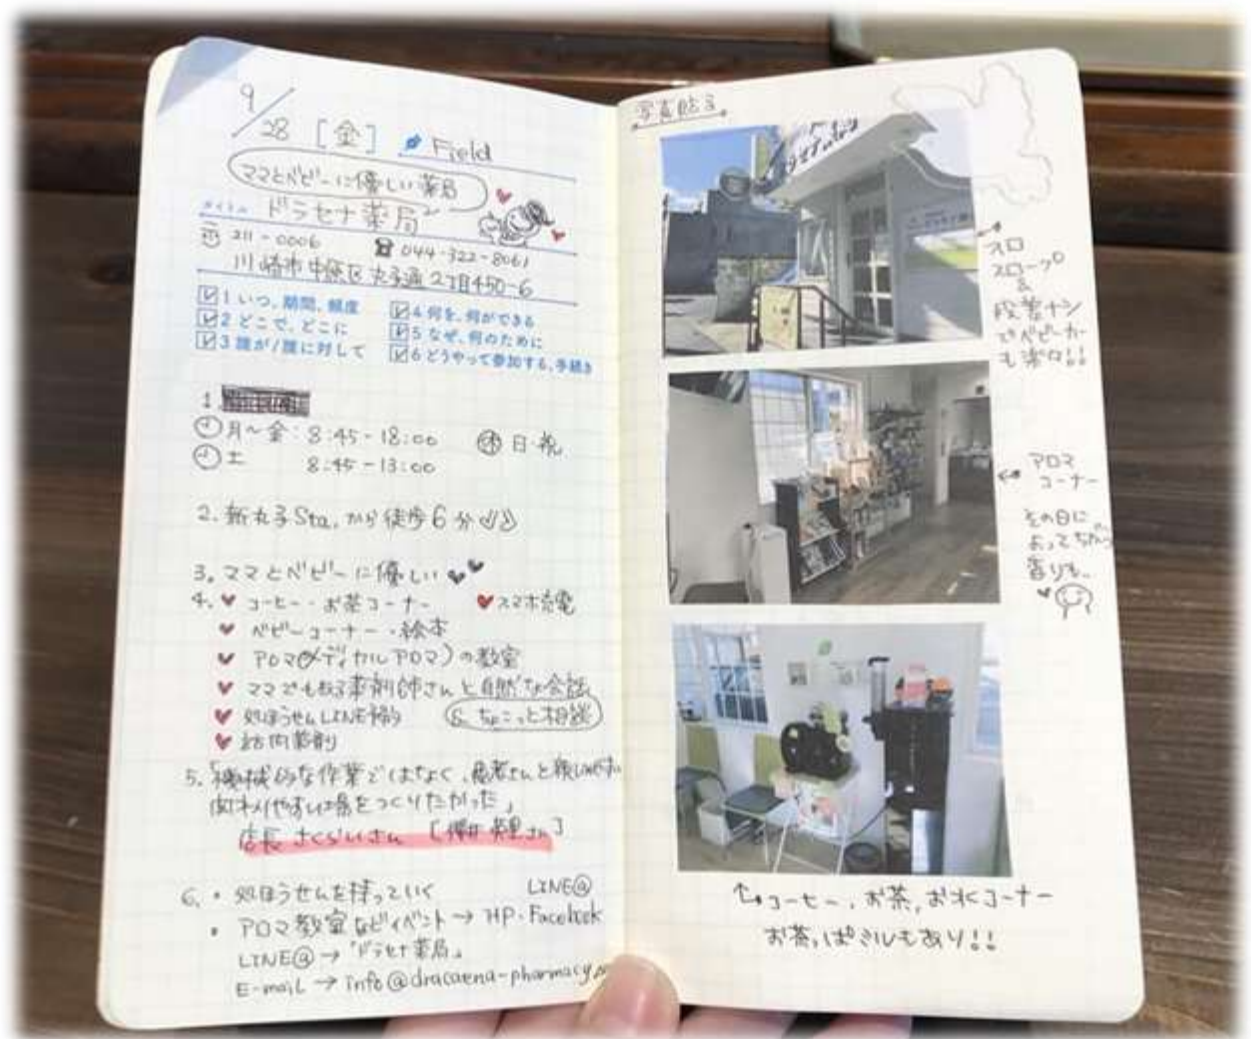 9/28 [金] Field
ママとベビーに優しい薬局
タイトル ドラセナ薬局
〒 211-0006 ☎ 044-322-8061
川崎市中原区丸子通2丁目450-6
☑1 いつ、期間、頻度
☑2 どこで、どこに
☑3 誰が/誰に対して
☑4 何を、何ができる
☑5 なぜ、何のために
☑6 どうやって参加する、手続き
1.
月〜金 8:45-18:00 ㊡ 日・祝
土 8:45-13:00
2. 新丸子Sta.から徒歩6分
3. ママとベビーに優しい
4. ♥ コーヒー・お茶コーナー ♥スマホ充電
♥ ベビーコーナー・絵本
♥ アロマ(メディカルアロマ)の教室
♥ ママでもある薬剤師さんと自然な会話
& ちょこっと相談
♥ 処ほうせんLINE予約
♥ 訪問薬剤
5. 「機械的な作業ではなく、患者さんと親しみやすい
関わりやすい場をつくりたかった」
店長 さくらいさん [櫻井 さん]
6. ・ 処ほうせんを持っていく LINE@
・ アロマ教室などイベント → HP・Facebook
LINE@ → 「ドラセナ薬局」
E-mail → info@dracaena-pharmacy
写真貼る
スロープ
&
段差ナシ
でベビーカー
も楽々!!
アロマ
コーナー
その日に
よってちがう
香りも
コーヒー、お茶、お水コーナー
お茶っぱミルもあり!!